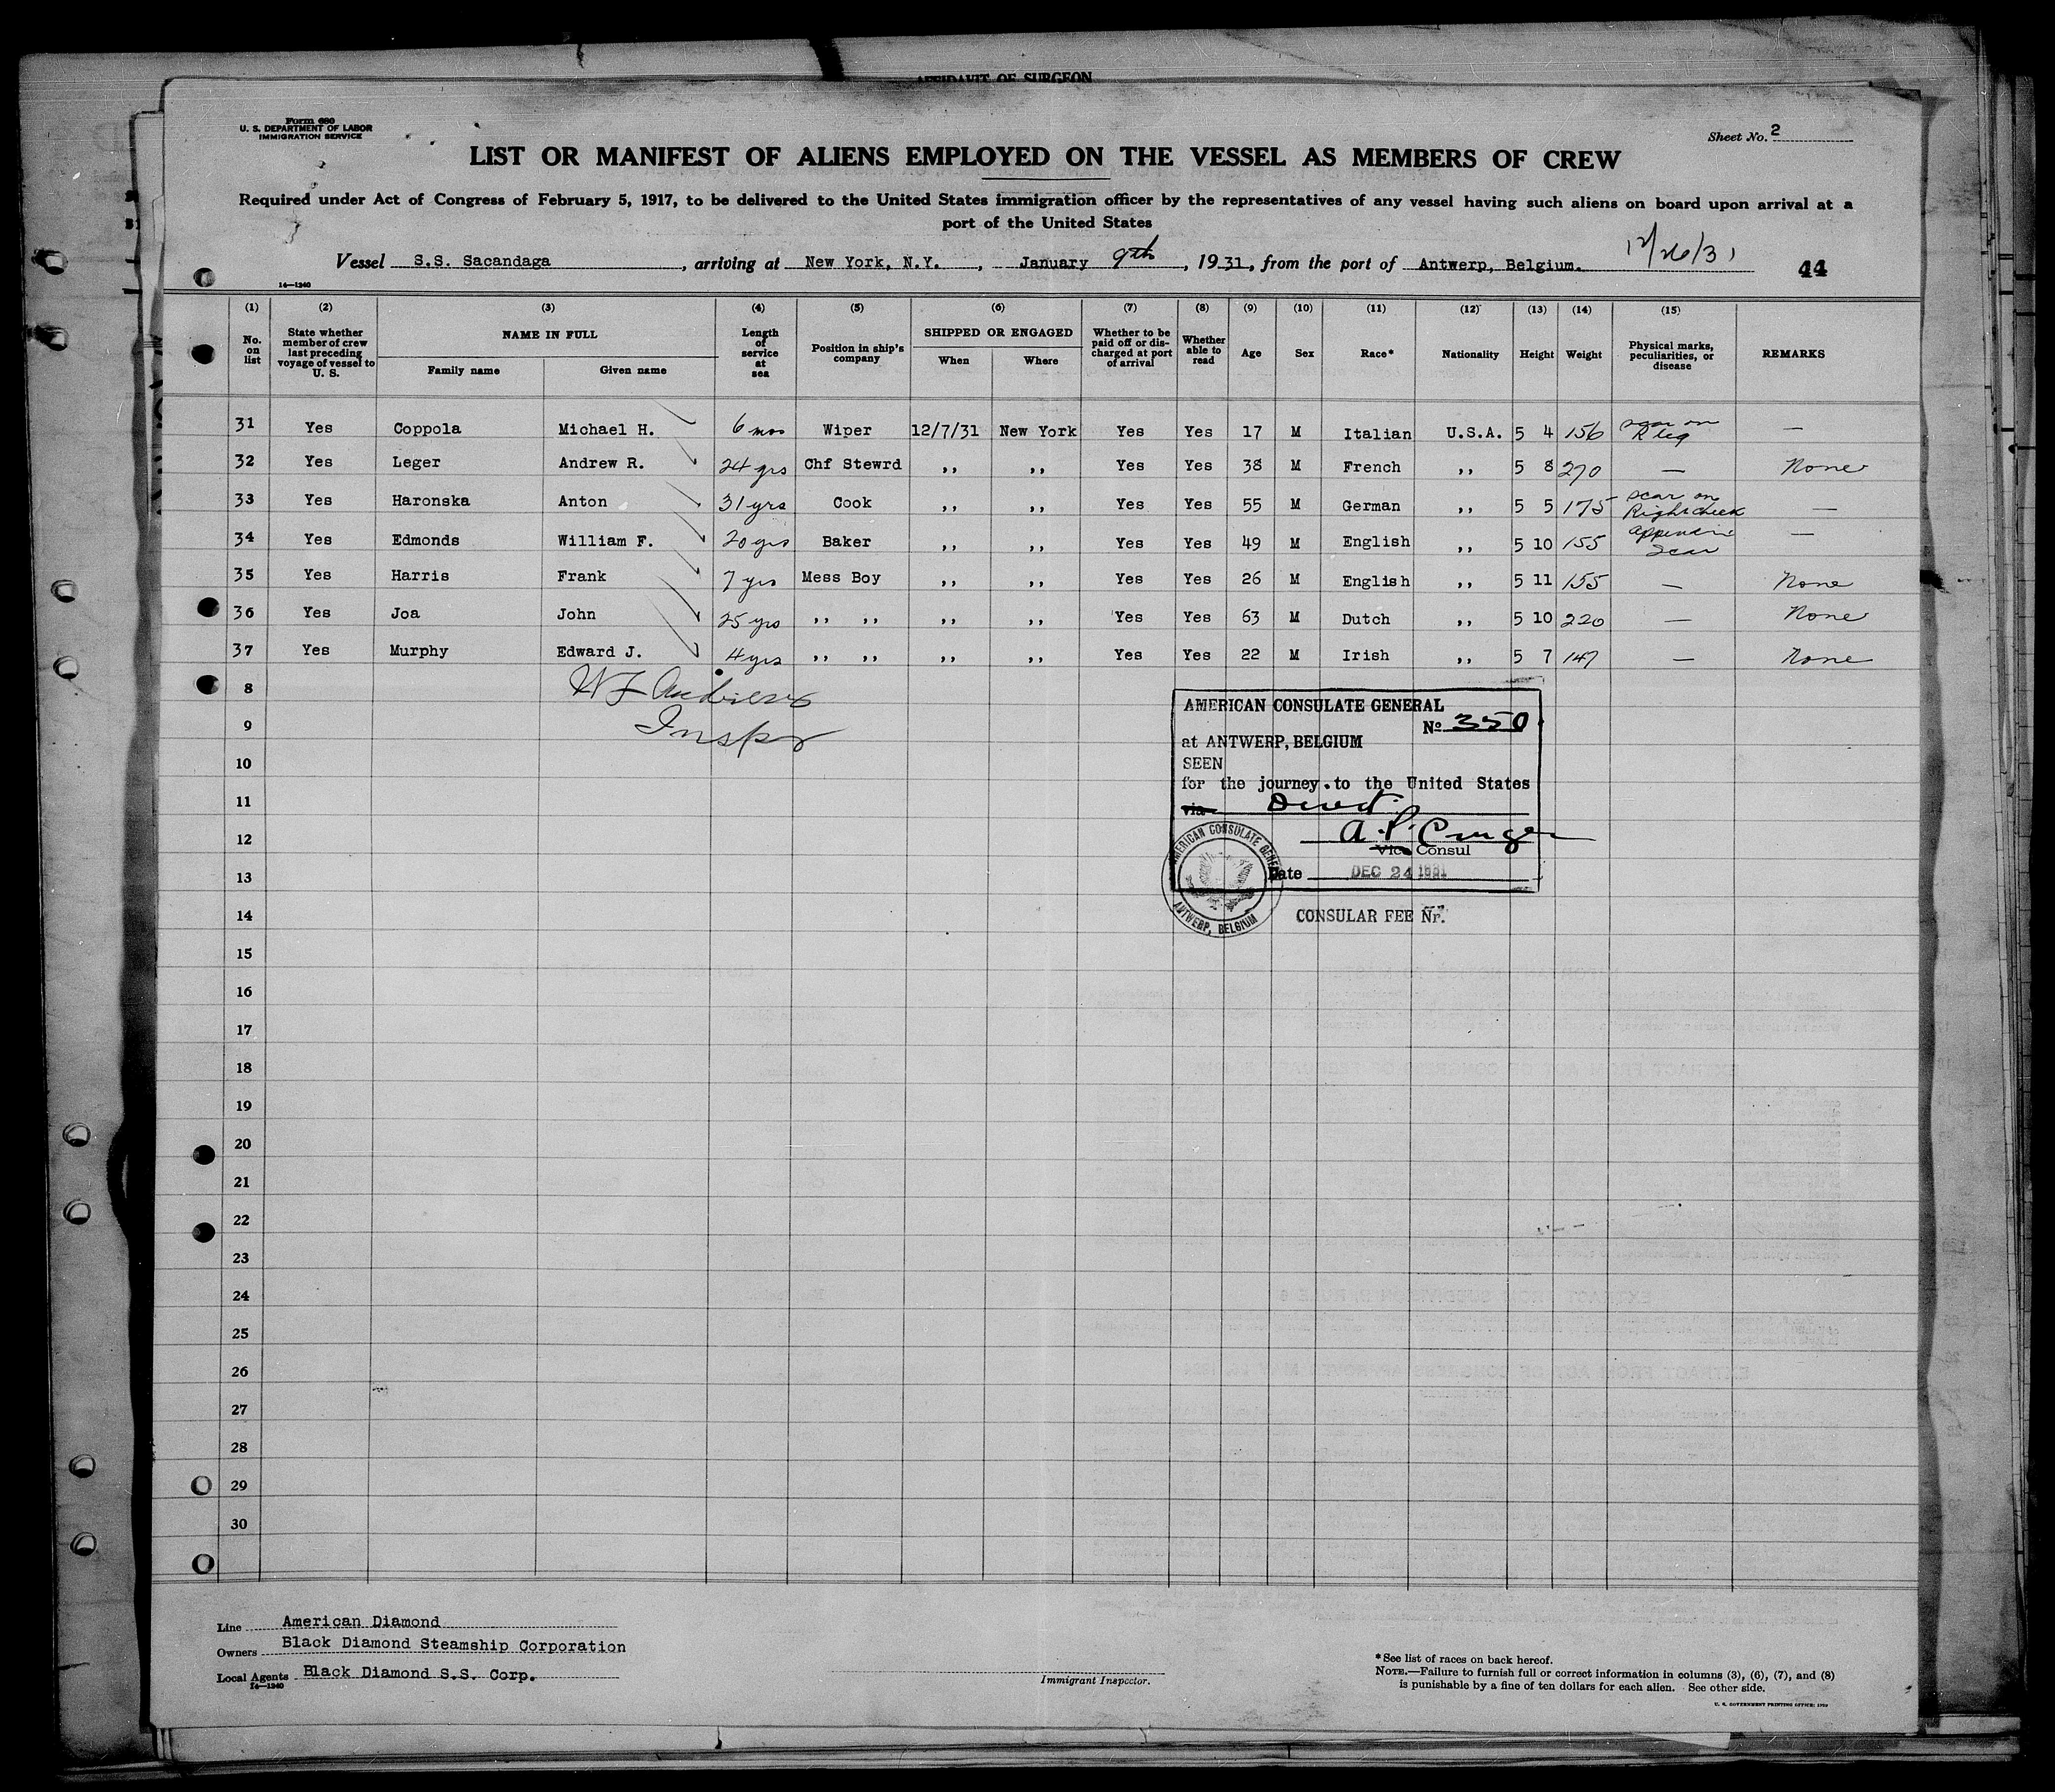 AFFIDAVIT OF SURGEON
Form 680
U. S. DEPARTMENT OF LABOR
IMMIGRATION SERVICE
Sheet No. 2
LIST OR MANIFEST OF ALIENS EMPLOYED ON THE VESSEL AS MEMBERS OF CREW
Required under Act of Congress of February 5, 1917, to be delivered to the United States immigration officer by the representatives of any vessel having such aliens on board upon arrival at a
port of the United States
12/26/31
Vessel S.S. Sacandaga, arriving at New York, N.Y., January 9th, 1931, from the port of Antwerp, Belgium. 44
14—1240
(1) (2) (3) (4) (5) (6) (7) (8) (9) (10) (11) (12) (13) (14) (15)
No. on list
State whether member of crew last preceding voyage of vessel to U. S.
NAME IN FULL
Family name
Given name
Length of service at sea
Position in ship's company
SHIPPED OR ENGAGED
When
Where
Whether to be paid off or discharged at port of arrival
Whether able to read
Age
Sex
Race*
Nationality
Height
Weight
Physical marks, peculiarities, or disease
REMARKS
31 Yes Coppola Michael H. 6 mos Wiper 12/7/31 New York Yes Yes 17 M Italian U.S.A. 5 4 156 scar on R leg —
32 Yes Leger Andrew R. 24 yrs Chf Stewrd ,, ,, Yes Yes 38 M French ,, 5 8 270 — None
33 Yes Haronska Anton 31 yrs Cook ,, ,, Yes Yes 55 M German ,, 5 5 175 scar on Right cheek —
34 Yes Edmonds William F. 20 yrs Baker ,, ,, Yes Yes 49 M English ,, 5 10 155 appendix scar —
35 Yes Harris Frank 7 yrs Mess Boy ,, ,, Yes Yes 26 M English ,, 5 11 155 — None
36 Yes Joa John 25 yrs ,, ,, ,, ,, Yes Yes 63 M Dutch ,, 5 10 220 — None
37 Yes Murphy Edward J. 4 yrs ,, ,, ,, ,, Yes Yes 22 M Irish ,, 5 7 147 — None
8
W F Andrews
9
Inspr
10
11
12
13
14
15
16
17
18
19
20
21
22
23
24
25
26
27
28
29
30
AMERICAN CONSULATE GENERAL
No 350
at ANTWERP, BELGIUM
SEEN
for the journey to the United States
via Direct
A. P. Cruger
Vice Consul
Date DEC 24 1931
AMERICAN CONSULATE GENERAL
ANTWERP, BELGIUM
CONSULAR FEE Nr.
Line American Diamond
Owners Black Diamond Steamship Corporation
Local Agents Black Diamond S.S. Corp.
14—1240
Immigrant Inspector.
*See list of races on back hereof.
NOTE.—Failure to furnish full or correct information in columns (3), (6), (7), and (8)
is punishable by a fine of ten dollars for each alien. See other side.